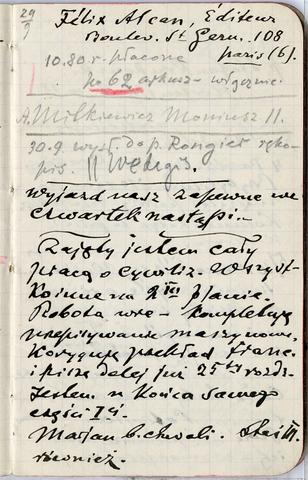 29/9 Félix Alcan, Éditeur
Boulev. St Germ. 108
Paris (6).
10.80 r. płacone
po 62 arkusz – włącznie.
A. Miłkiewicz Moniuszki 11.
30.9 wysł. do p. Rongier ręko-
pis. || Wedgis.
Wyjazd nasz zapewne we
czwartek nastąpi. –
Zajęty jestem cały
pracą o Cywiliz. Wszyst-
ko inne na 2im planie.
Robota wre – kompletuję
przepisywanie maszynowe,
koryguję przekład franc.
i piszę dalej już 25ty rozdz.
Jestem u końca samego
części I ej.
Marjan b. chwali.
również.